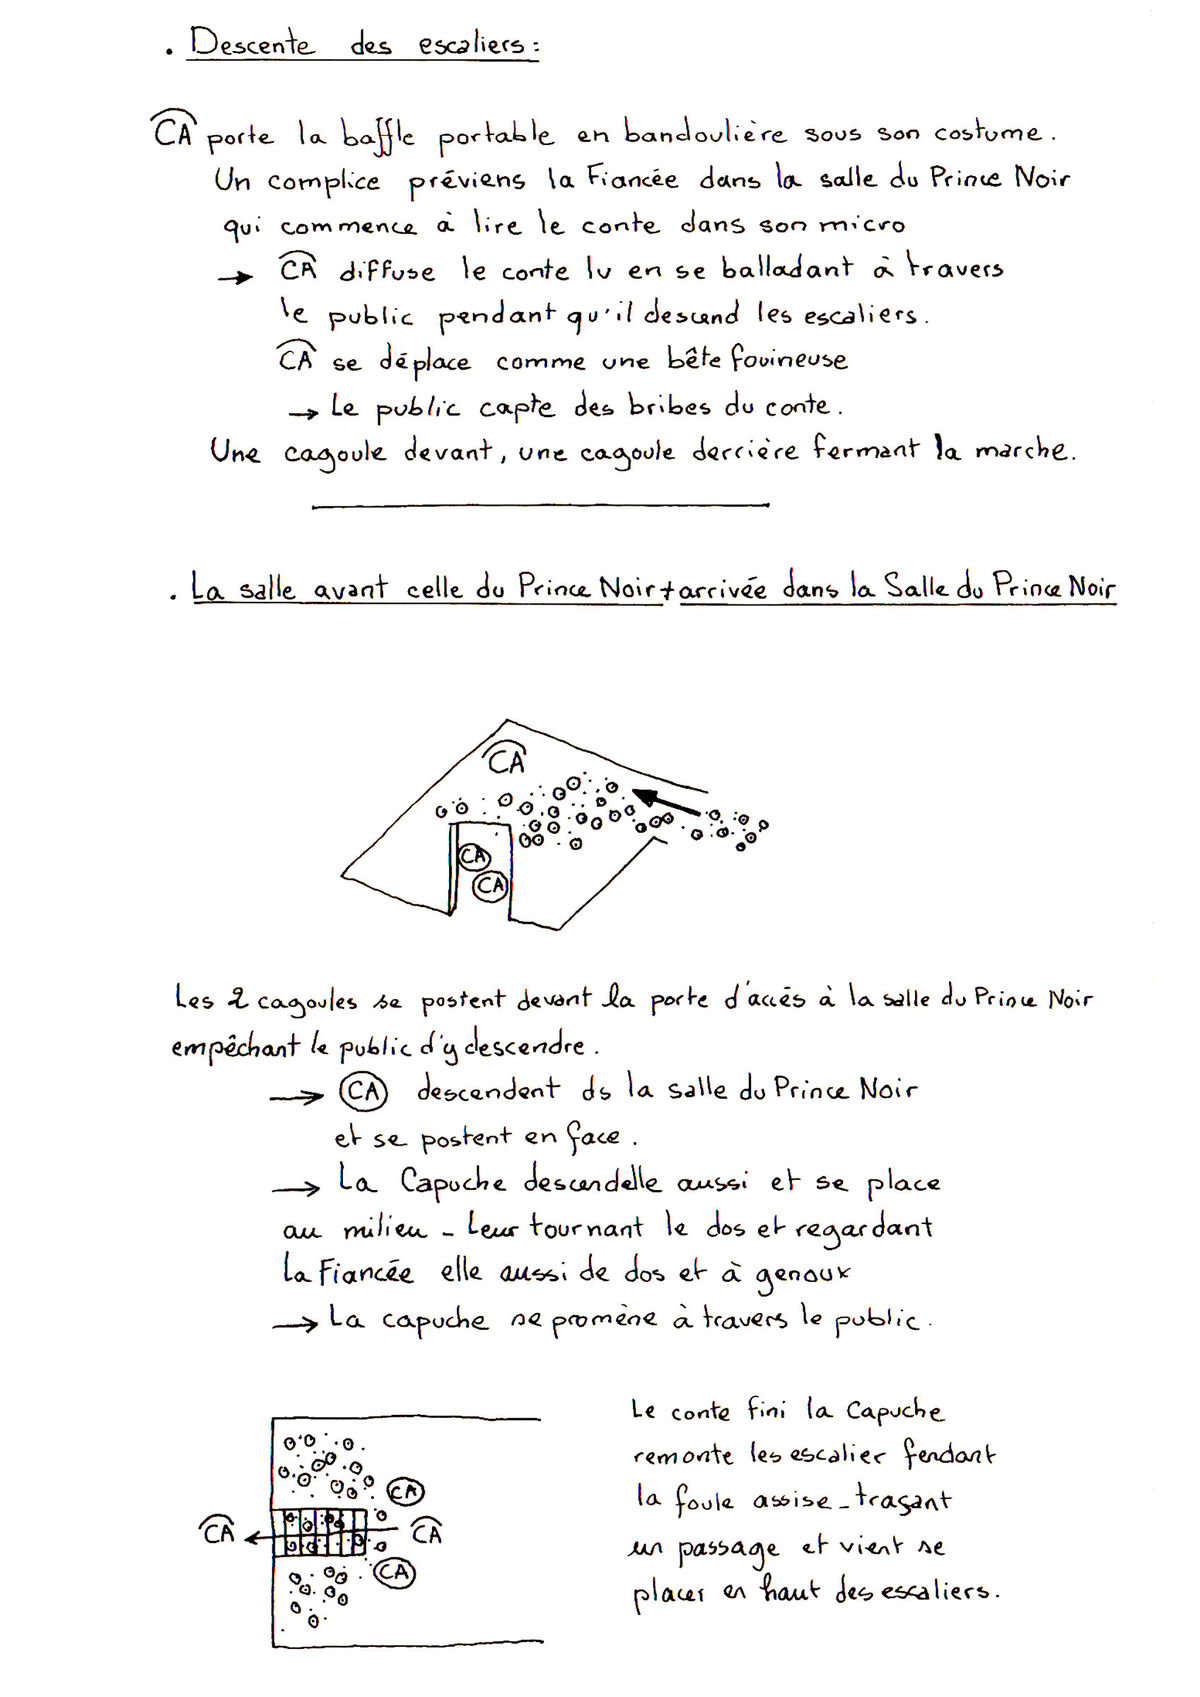 . Descente des escaliers :
CA porte la baffle portable en bandoulière sous son costume.
Un complice préviens la Fiancée dans la salle du Prince Noir
qui commence à lire le conte dans son micro
→ CA diffuse le conte lu en se balladant à travers
le public pendant qu'il descend les escaliers.
CA se déplace comme une bête fouineuse
→ Le public capte des bribes du conte.
Une cagoule devant, une cagoule derrière fermant la marche.
. La salle avant celle du Prince Noir + arrivée dans la Salle du Prince Noir
CA
CA
CA
Les 2 cagoules se postent devant la porte d'accés à la salle du Prince Noir
empêchant le public d'y descendre.
→ CA descendent ds la salle du Prince Noir
et se postent en face.
→ La Capuche descendelle aussi et se place
au milieu - Leur tournant le dos et regardant
la Fiancée elle aussi de dos et à genoux
→ La capuche se promène à travers le public.
CA
CA
CA
CA
Le conte fini la Capuche
remonte les escalier fendant
la foule assise - traçant
un passage et vient se
placer en haut des escaliers.